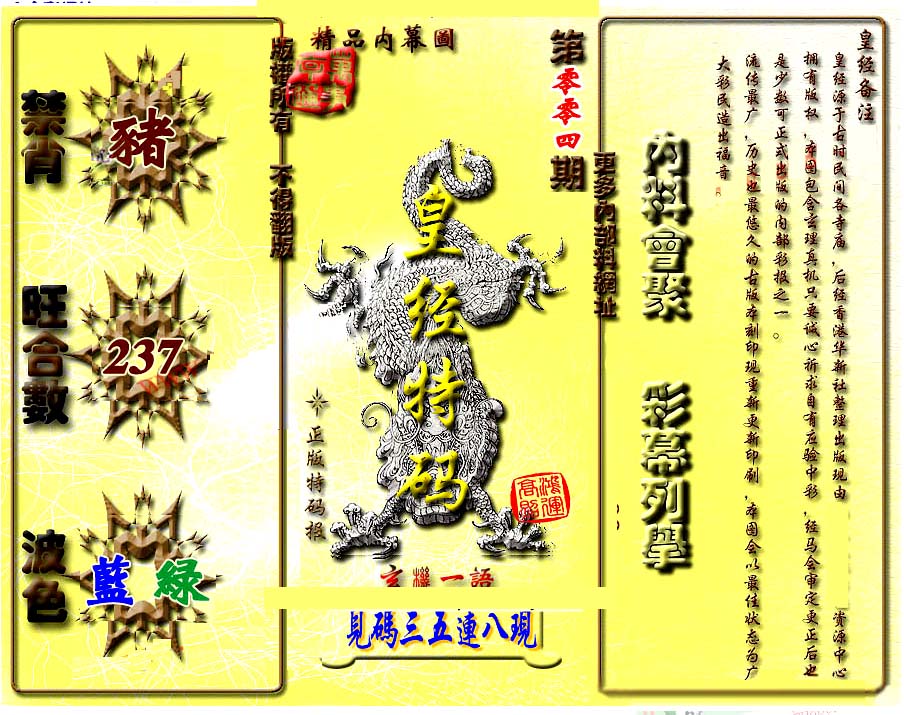 精品内幕圖
第零零四期
版權所有 不得翻版
更多內部料網址
禁肖
豬
旺合數
237
波色
藍 綠
皇经特码
正版特码报
鴻運高照
玄機一語
見碼三五連八現
內料會聚 彩幕列舉
皇经备注
皇经源于古时民间各寺庙,后经香港华新社整理出版现由 资源中心
拥有版权,本图包含玄理真机只要诚心祈求自有应验中彩,经马会审定更正后也
是少数可正式出版的内部彩报之一。
流传最广,历史也最悠久的古版本刻印现重新更新印刷,本图会以最佳状态为广
大彩民造出福音。